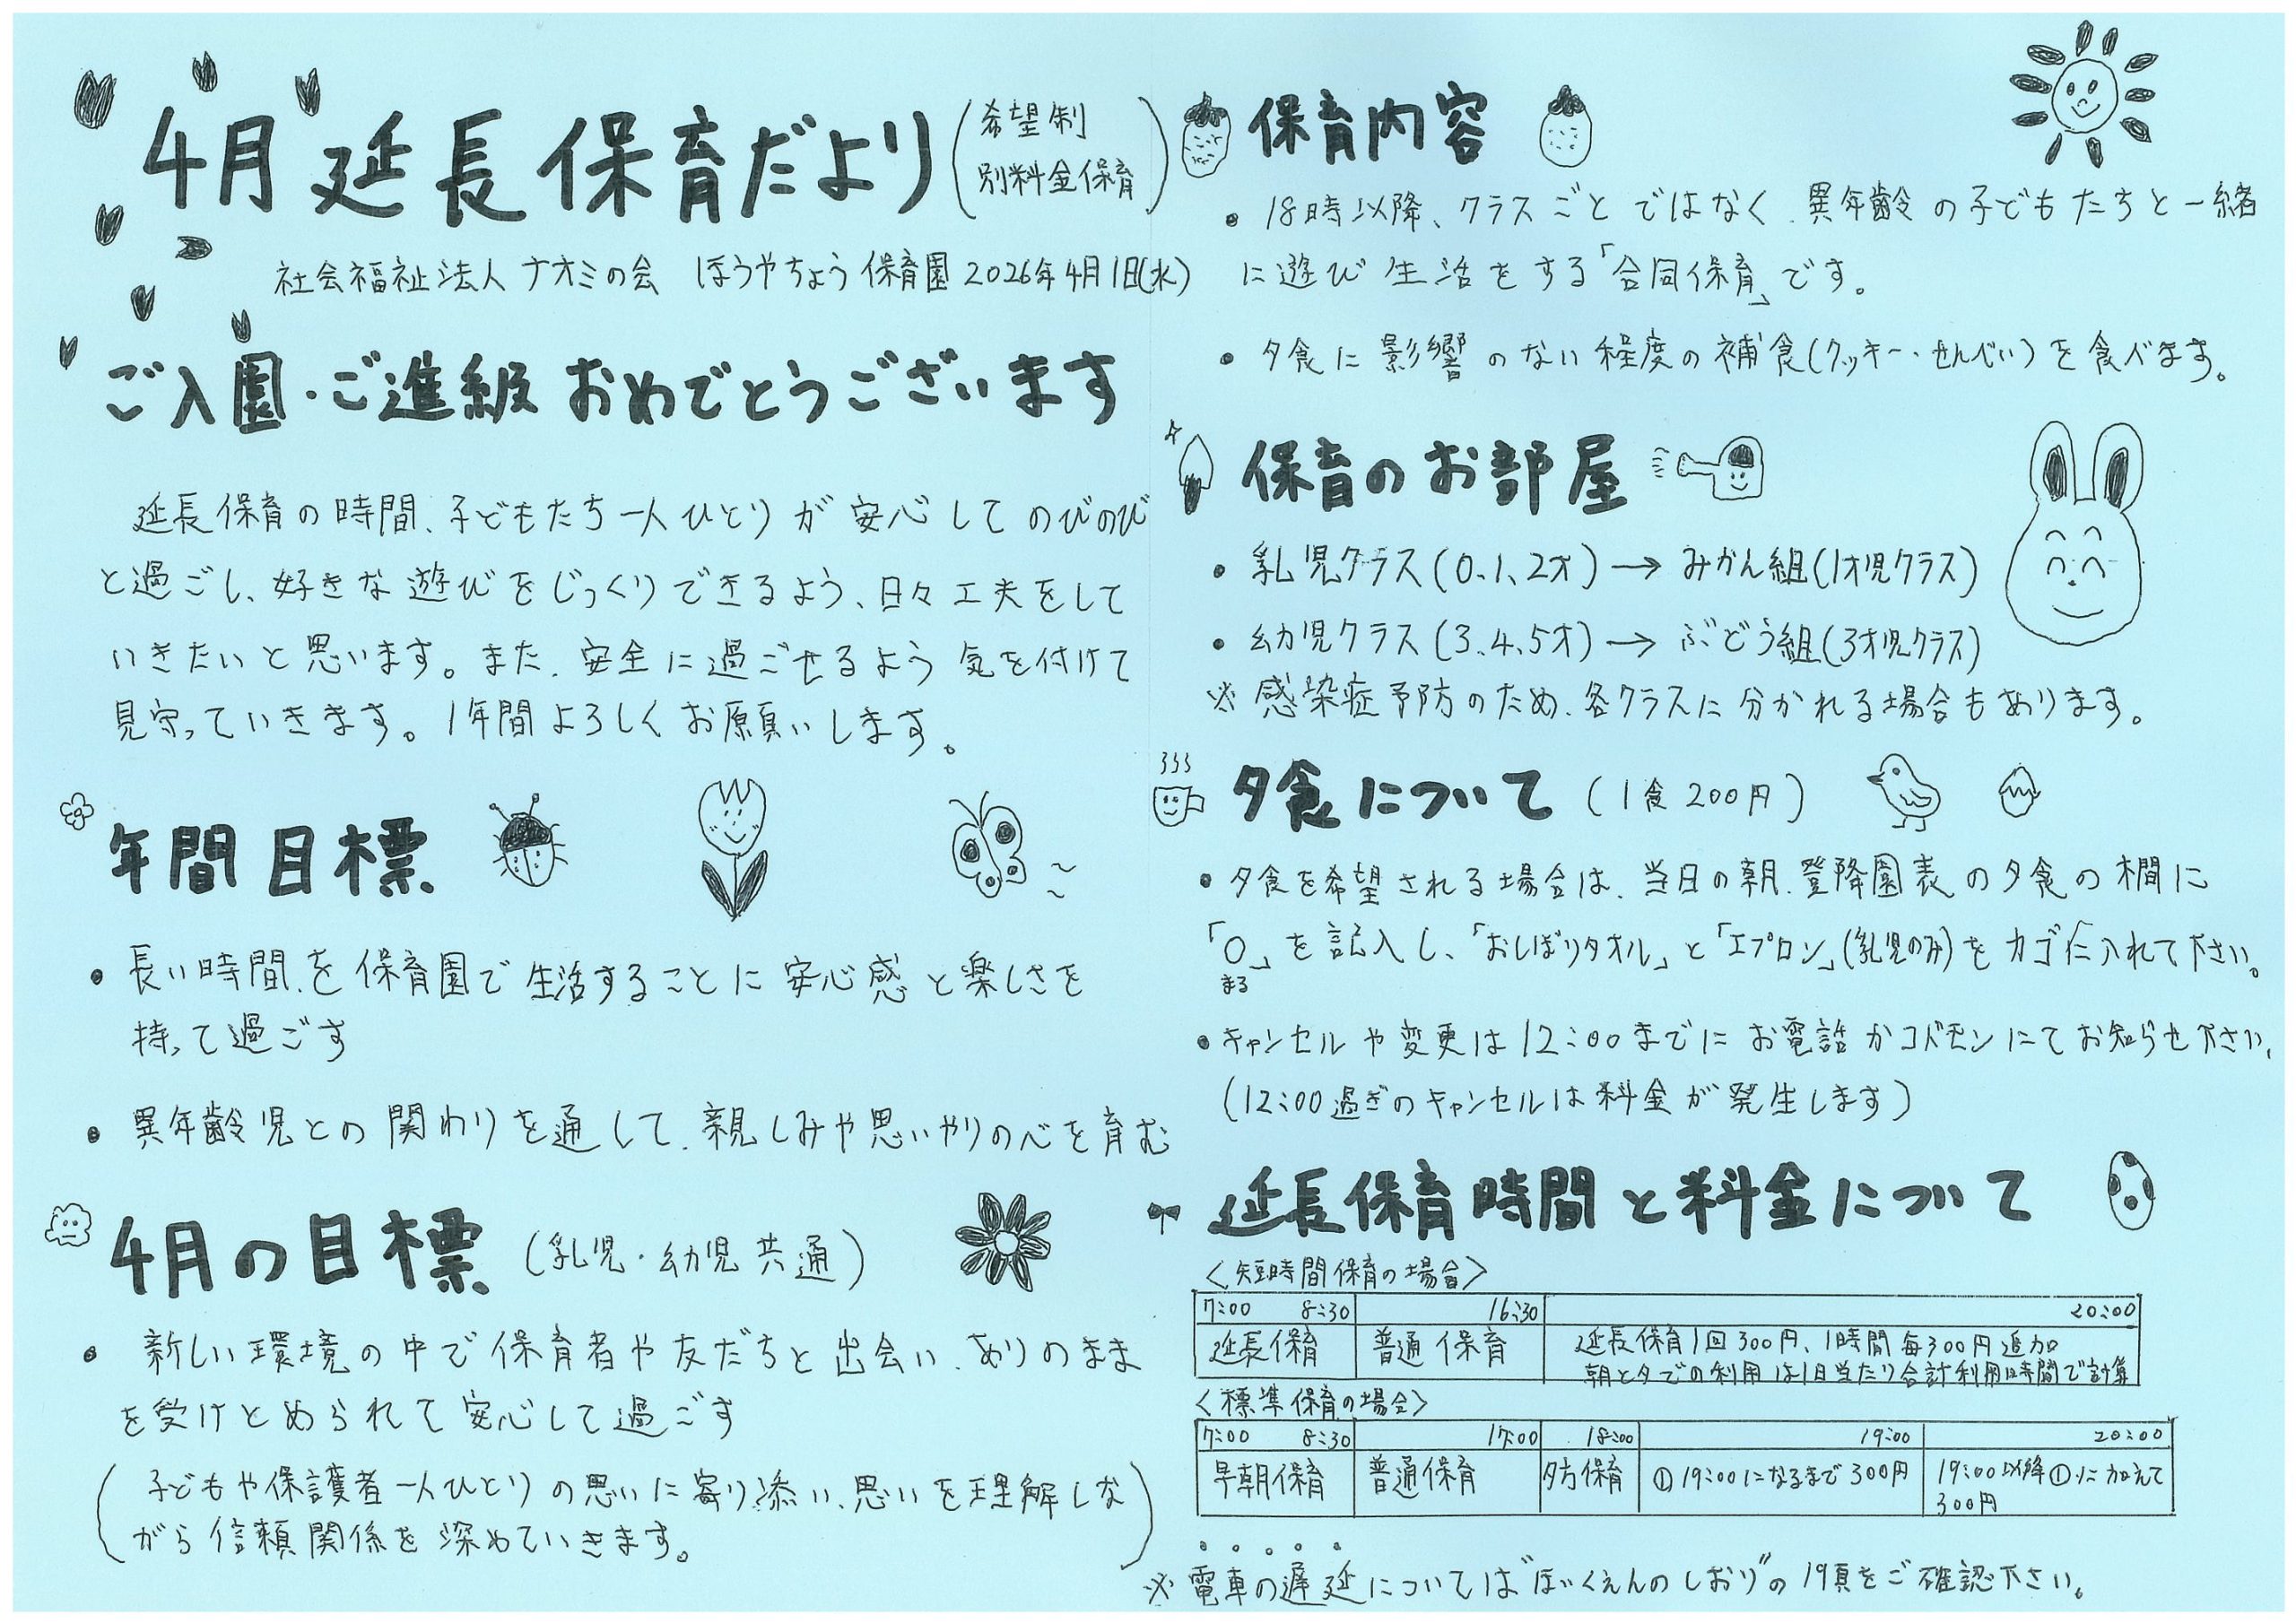 4月 延長保育だより (希望制
別料金保育)
社会福祉法人 ナオミの会 ほうやちょう保育園 2026年4月1日(水)
ご入園・ご進級 おめでとうございます
延長保育の時間、子どもたち一人ひとりが安心してのびのび
と過ごし、好きな遊びをじっくりできるよう、日々工夫をして
いきたいと思います。また、安全に過ごせるよう気を付けて
見守っていきます。1年間よろしくお願いします。
年間目標
• 長い時間を保育園で生活することに安心感と楽しさを
持って過ごす
• 異年齢児との関わりを通して、親しみや思いやりの心を育む
4月の目標 (乳児・幼児共通)
• 新しい環境の中で保育者や友だちと出会い、ありのまま
を受けとめられて安心して過ごす
(子どもや保護者一人ひとりの思いに寄り添い、思いを理解しな
がら信頼関係を深めていきます。)
保育内容
• 18時以降、クラスごとではなく、異年齢の子どもたちと一緒
に遊び生活をする「合同保育」です。
• 夕食に影響のない程度の補食(クッキー・せんべい)を食べます。
保育のお部屋
• 乳児クラス(0、1、2才)→みかん組(1才児クラス)
• 幼児クラス(3、4、5才)→ぶどう組(3才児クラス)
※感染症予防のため、各クラスに分かれる場合もあります。
夕食について (1食200円)
• 夕食を希望される場合は、当日の朝、登降園表の夕食の欄に
「○」を記入し、「おしぼりタオル」と「エプロン」(乳児のみ)をカゴに入れて下さい。
まる
• キャンセルや変更は12:00までにお電話かコドモンにてお知らせ下さい。
(12:00過ぎのキャンセルは料金が発生します)
延長保育時間と料金について
<短時間保育の場合>
7:00 8:30 16:30 20:00
延長保育 普通保育 延長保育1回300円、1時間毎300円追加
朝と夕での利用は1日当たり合計利用時間で計算
<標準保育の場合>
7:00 8:30 17:00 18:00 19:00 20:00
早朝保育 普通保育 夕方保育 ①19:00になるまで300円 19:00以降①に加えて
300円
※電車の遅延については"ほいくえんのしおり"の19頁をご確認下さい。